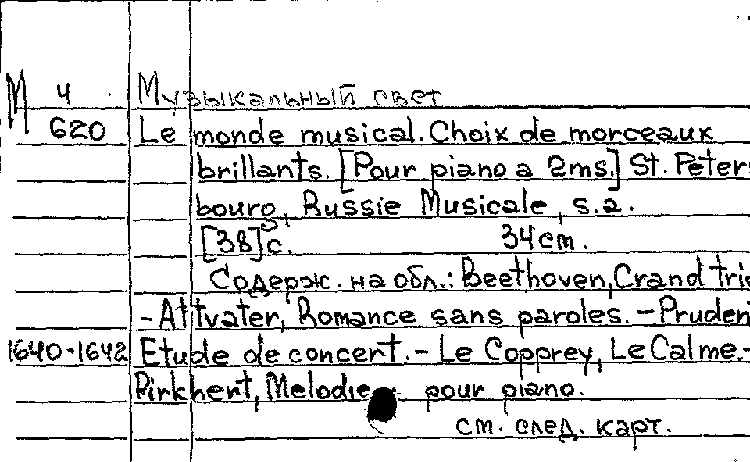 М 4 Музыкальный свет
620 Le monde musical. Choix de morceaux
brillants. [Pour piano a 2ms.] St. Peters
bourg, Russie Musicale, s.a.
[38]c. 34cm.
Содерж. на обл.: Beethoven, Grand trio
-Attvater, Romance sans paroles. - Pruden
1640-1642 Etude de concert. - Le Copprey, Le Calme. -
Pirkhert, Melodie pour piano.
см. след. карт.